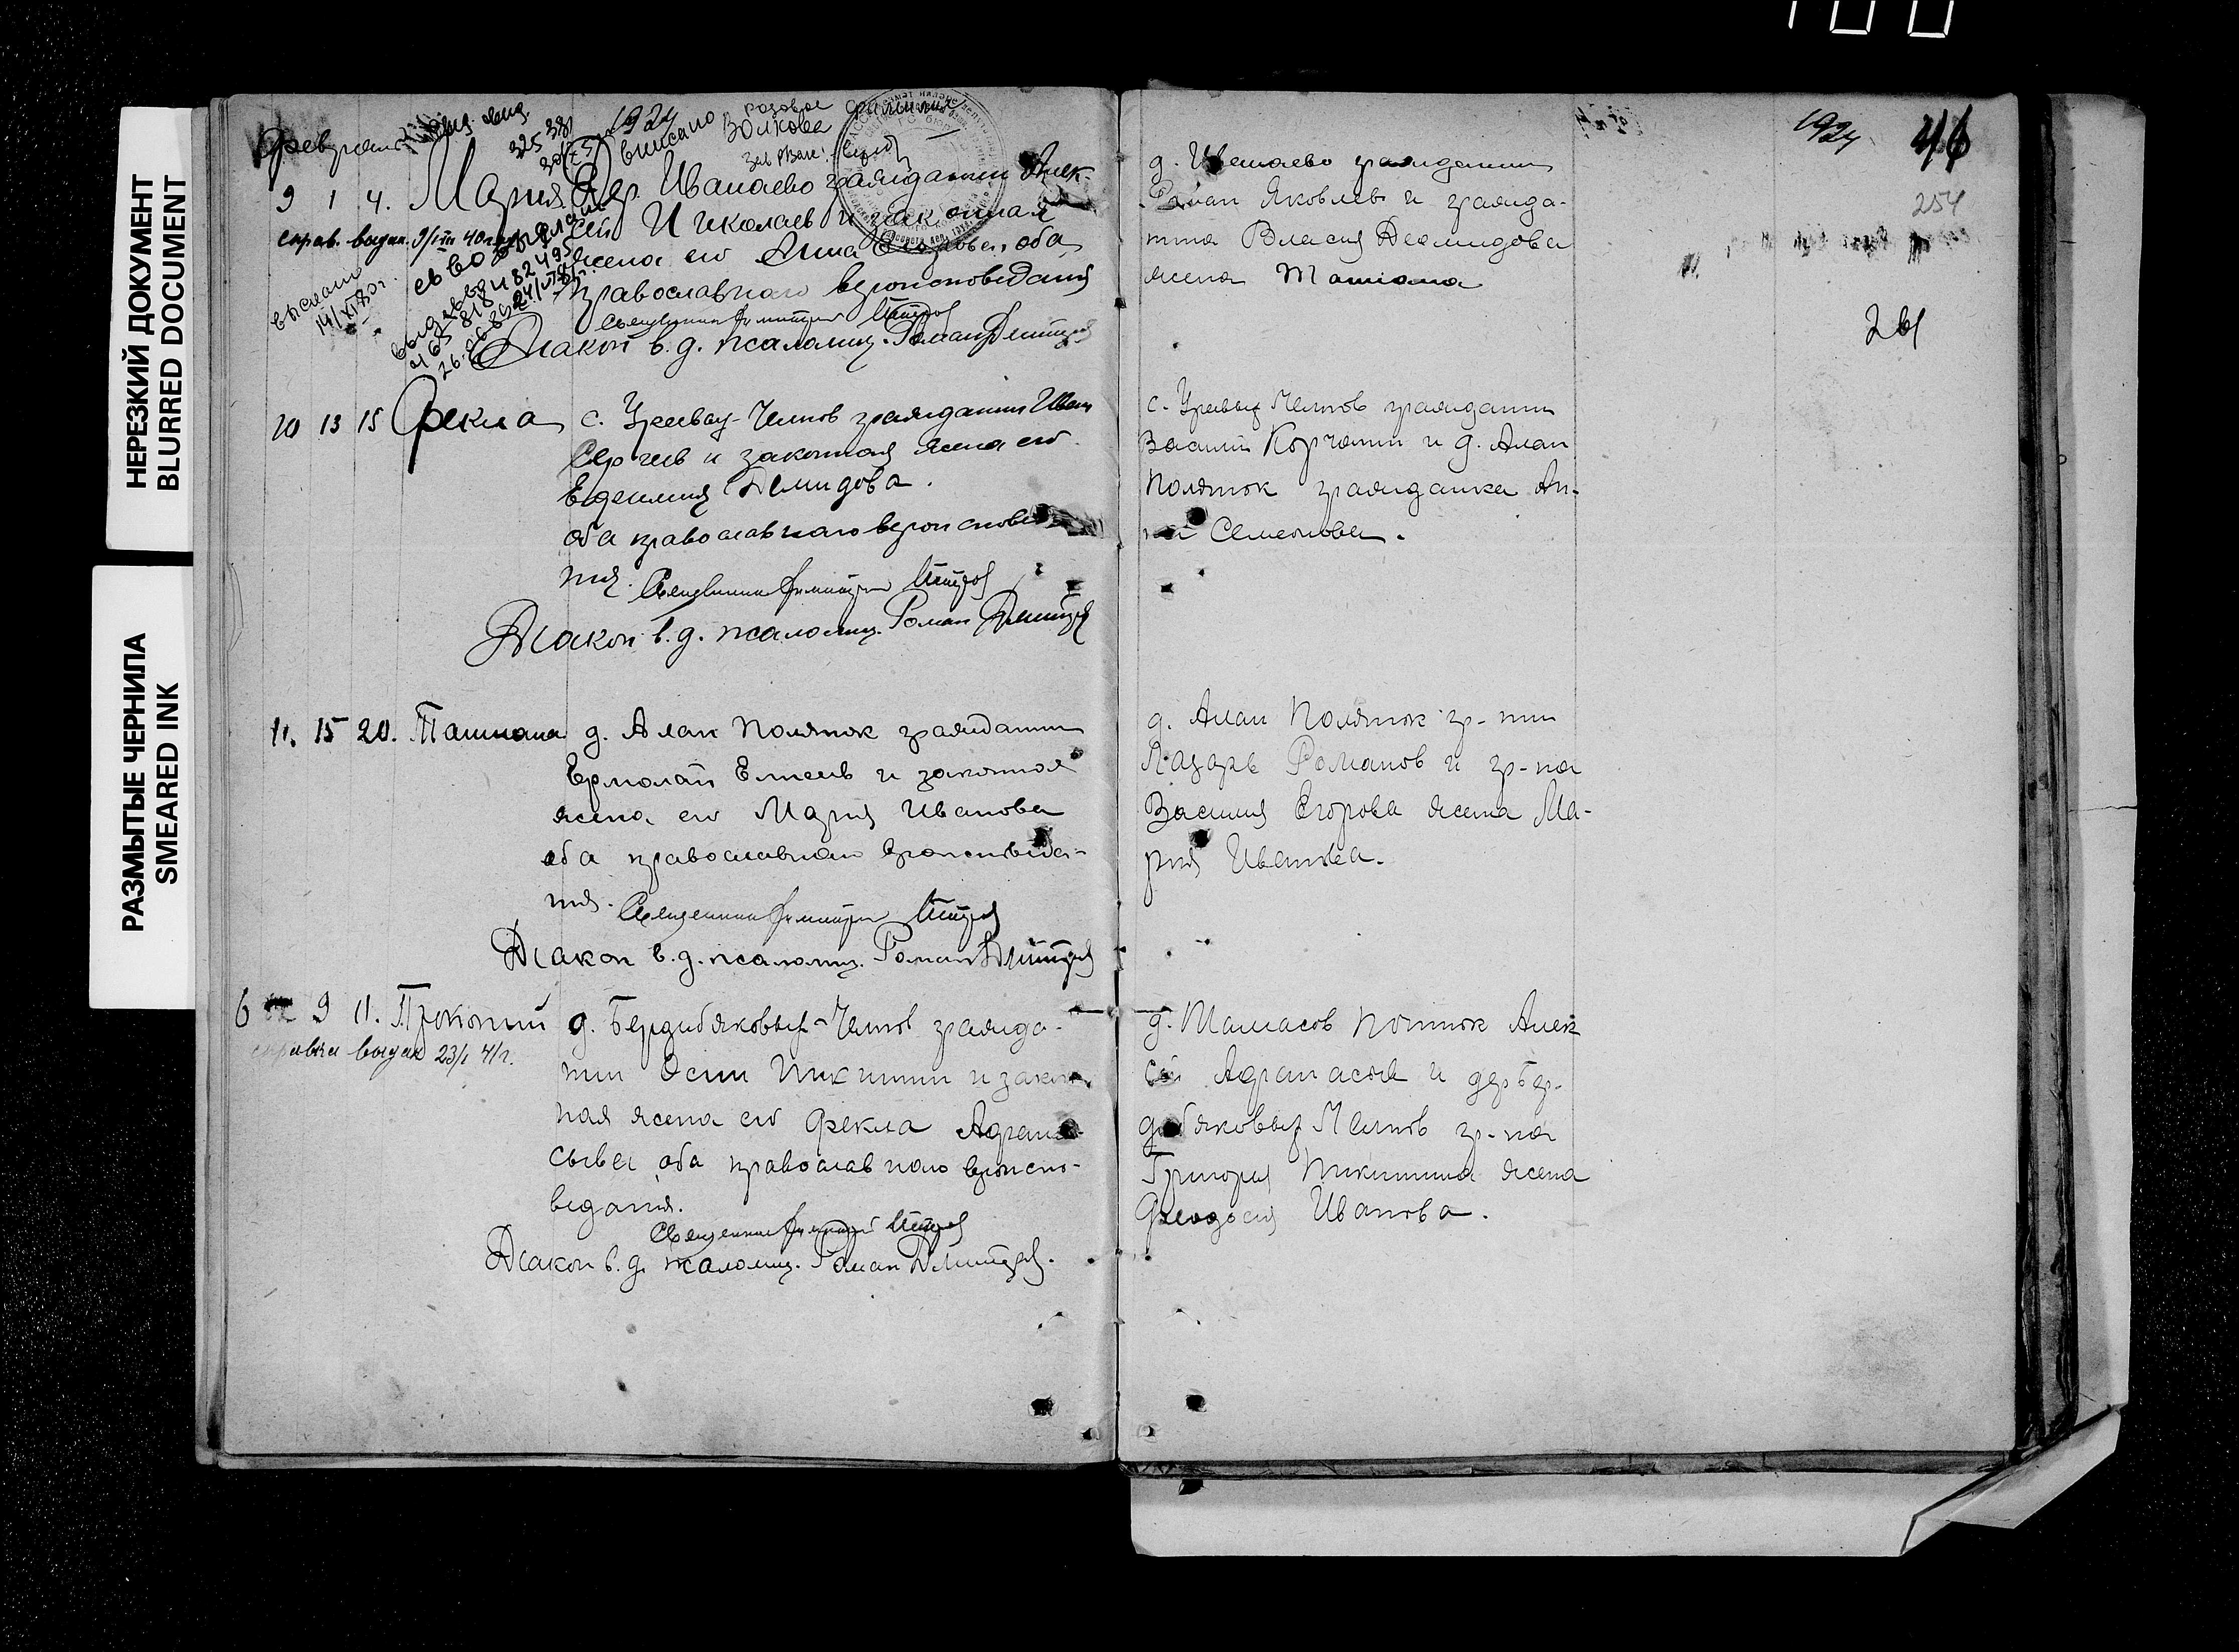 НЕРЕЗКИЙ ДОКУМЕНТ
BLURRED DOCUMENT
РАЗМЫТЫЕ ЧЕРНИЛА
SMEARED INK
Февраль
1924
вписано
Волкова
9 1 4. Мария
Дер. Иванаево гражданин Алек-
сей Николаев и законная
жена его Анна
оба
православнаго вероисповедания
Священник Димитрий
Диакон в. д. псаломщ. Роман Дмитр
справ. выдан.
выслано
10 13 15 Фекла
с. Уреевых-Челнов гражданин Иван
Сергеев и законная жена его
Евдокия Демидова.
оба православнаго вероисповеда
ния. Священник Димитрий
Диакон в. д. псаломщ. Роман Дмитр
11. 15 20. Татиана
д. Алан Полянок гражданин
Ермолай Елисеев и законная
жена его Мария Иванова
оба православнаго вероисповеда-
ния. Священник Димитрий
Диакон в. д. псаломщ. Роман Дмитр
6 9 11. Прокопий
справка выдан 23/I 41г.
д. Бердибяковых-Челнов гражда-
нин Осип Никитин и закон
ная жена его Фекла Афана
сьева оба православнаго вероиспо-
ведания.
Священник Димитрий
Диакон в. д. псаломщ. Роман Дмитр
1924
46
254
261
д. Иванаево гражданин
Роман Яковлев и гражда-
нина Власия Деомидова
жена Татиана
с. Уреевых Челнов гражданин
Василий Корчагин и д. Алан
Полянок гражданка Ан-
на Семенова.
д. Алан Полянок гр-нин
Лазарь Романов и гр-на
Василия Егорова жена Ма-
рия Иванова.
д. Машасов Починок Алек
сей Афанасьев и дер Бер-
дибяковых Челнов гр-на
Григория Никитина жена
Феодосия Иванова.